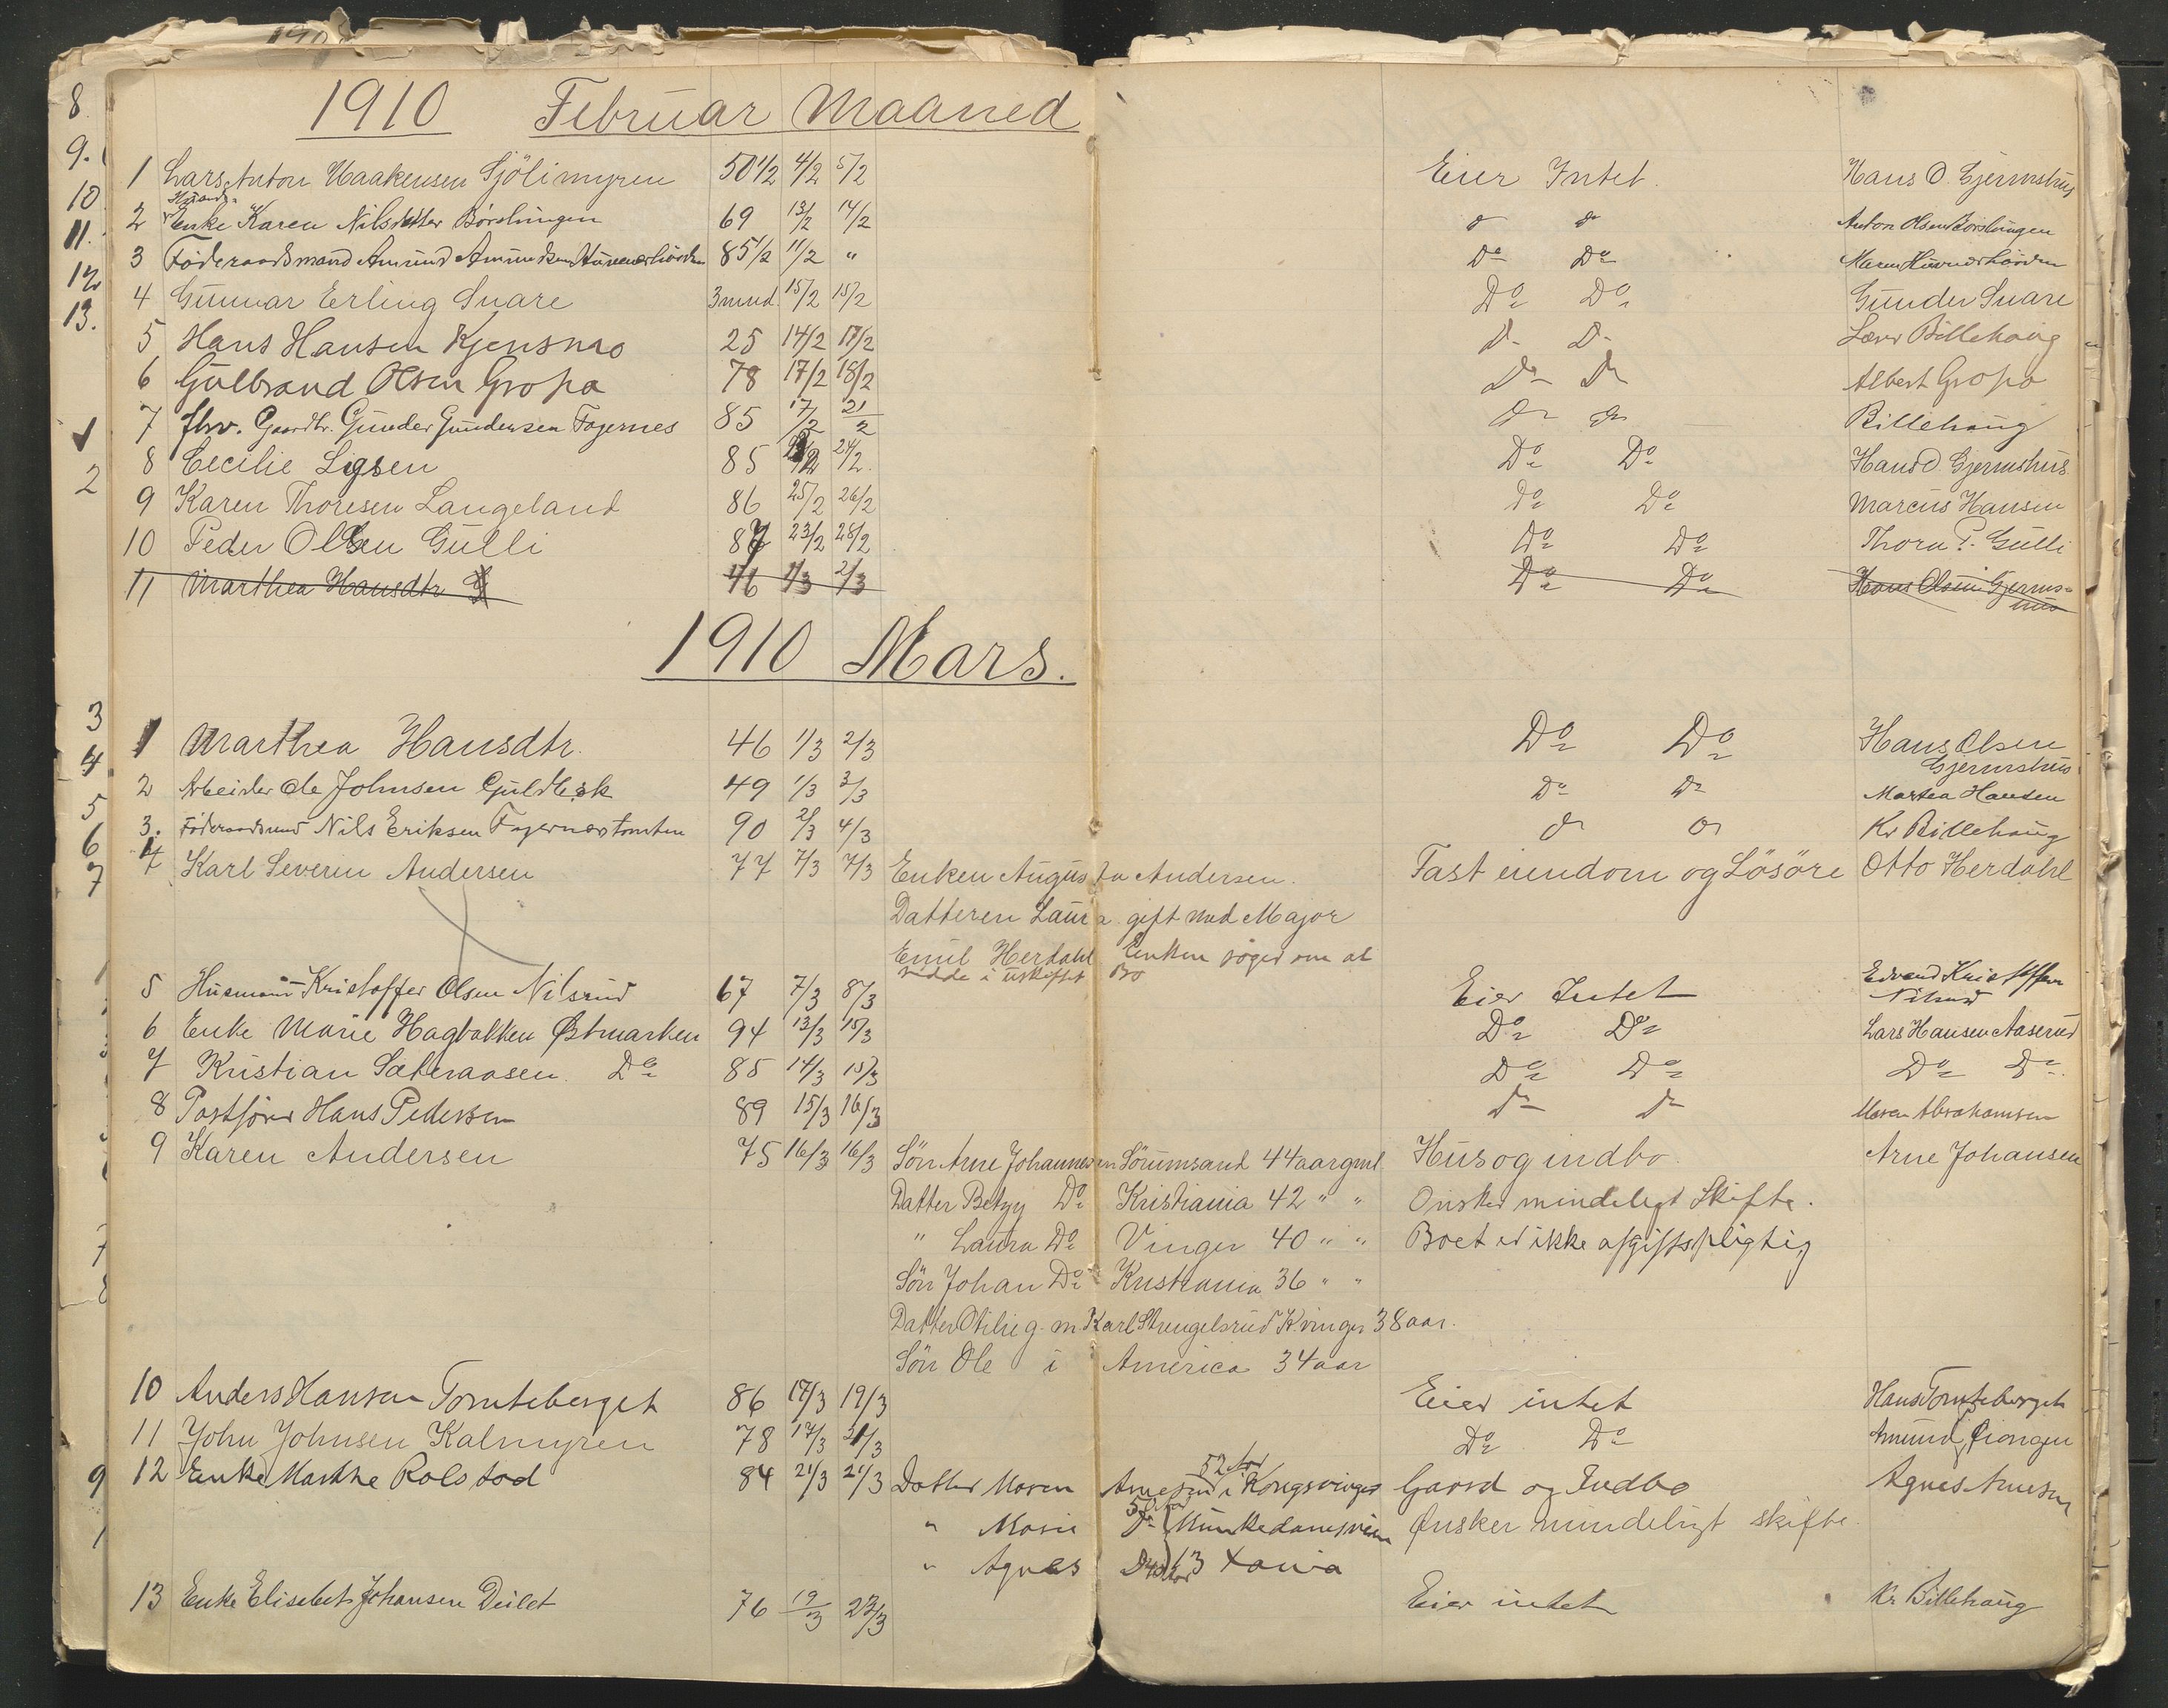 1910 Februar Maaned
1 Lars Anton Haakensen Sjölimyren 50 1/2 4/2 5/2 Eier Intet. Hans O. Gjermshus
Huands-
2 Enke Karen Nilsdatter Börslungen 69 13/2 14/2 d d Anton Olsen Börslungen
3 Föderaadsmand Amund Amundsen 85 1/2 11/2 " Do Do Maren
4 Gunnar Erling Snare 3 mnd. 15/2 15/2 Do Do Gunder Snare
5 Hans Hansen Kjensmo 25 14/2 17/2 D- D- Billehaug
6 Gulbrand Olsen Gropa 78 17/2 18/2 Do Do Albert Gropa
7 fhv. Gaardbr. Gunder Gundersen Fagernes 85 17/2 21/2 Do Do Billehaug
8 Cecilie Ligsen 85 24/2 Do Do Hans O. Gjermshus
9 Karen Thoresen Langeland 86 25/2 26/2 Do Do Marcus Hansen
10 Peder Olsen Gulli 87 23/2 28/2 Do Do Thora P. Gulli
11 Marthea Hansdtr 46 1/3 2/3 Do Do Hans Olsen Gjerms=
hus
1910 Mars.
1 Marthea Hansdtr. 46 1/3 2/3 Do Do Hans Olsen
Gjermshus
2 Arbeider Ole Johnsen Guldbæk 49 1/3 3/3 Do Do Martea Hansen
3. Föderaadsmand Nils Eriksen Fagernestomten 90 2/3 4/3 Do Do Kr Billehaug
4 Karl Severin Andersen 77 7/3 7/3 Enken Augusta Andersen. Fast eiendom og Lösöre Otto Herdahl
Datteren Laura gift med Major
Emil Herdahl Enken söger om at
sidde i uskiftet Bo
5 Husmann Kristoffer Olsen Nilsrud 67 7/3 8/3 Eier Intet Edvard Kristoffersen
Nilsrud
6 Enke Marie Hagbakken Østmarken 94 13/3 15/3 Do Do Lars Hansen Aaserud
7 Kristian Sæteraasen. Do 85 14/3 15/3 Do Do Do Do
8 Postförer Hans Pedersen 89 15/3 16/3 Do Do Maren Abrahamsen
9 Karen Andersen 75 16/3 16/3 Sön Arne Johannesen Sörumsand 44 aar gml. Hus og indbo. Arne Johansen
Datter Betzy Do Kristiania 42 " " Önsker mindeligt Skifte.
" Laura Do Vinger 40 " " Boet er ikke afgiftspligtig
Sön Johan Do Kristiania 36 " "
Datter Otilie g. m. Karl Strengelsrud Kvinger 38 aar.
Sön Ole i America 34 aar
10 Anders Hansen Tomteberget 86 17/3 19/3 Eier intet Hans Tomteberget
11 John Johnsen Kalmyren 78 17/3 21/3 Do Do Amund
12 Enke Marthe Rolstad 84 21/3 21/3 Datter Maren Arnesen i Kongsvinger 52 aar Gaard og Indbo Agnes Arnesen
" Marie Do 50 aar Munkedamsveien Ønsker mindeligt skifte.
" Agnes Do 13 Xania
13 Enke Elisebet Johansen Deilet 76 19/3 23/3 Eier intet Kr Billehaug
8
9.
10
11.
12
13.
1
2
3
4
5
6
7
9